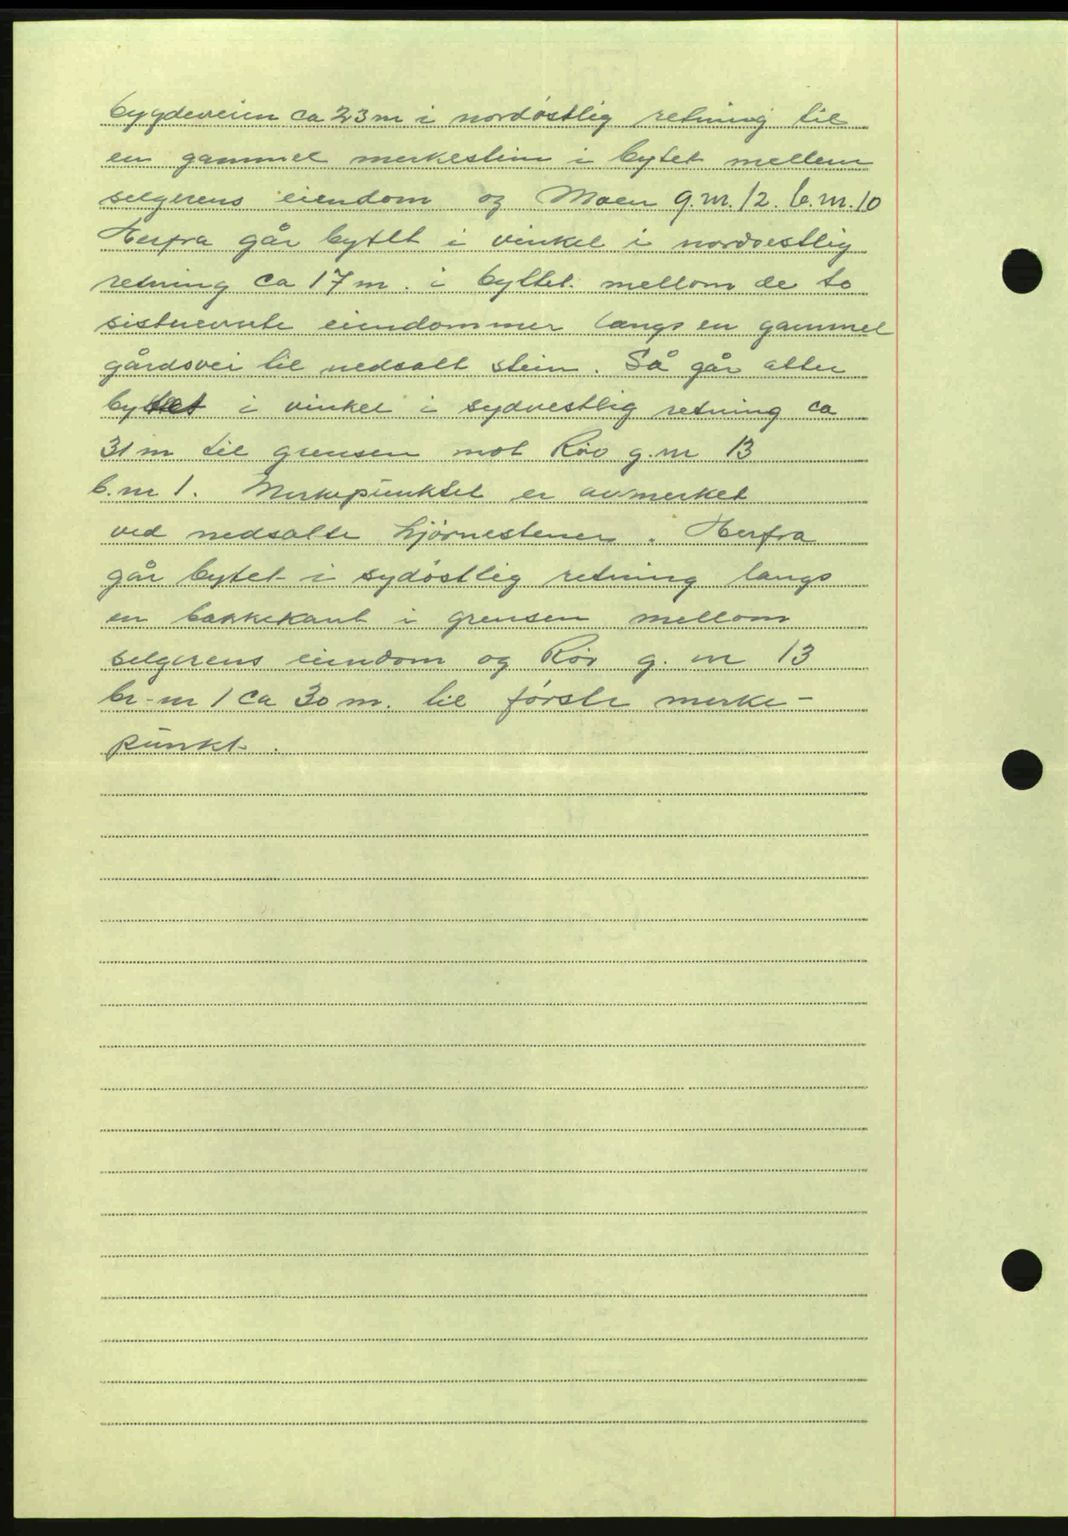 bygdeveien ca 23 m i nordøstlig retning til
en gammel merkestein i bytet mellem
selgerens eiendom og Moen g.nr. 12. b.nr. 10
Herfra går bytet i vinkel i nordvestlig
retning ca 17 m. i byttet mellom de to
sistnevnte eiendommer langs en gammel
gårdsvei til nedsatt stein. Så går atter
byttet i vinkel i sydvestlig retning ca
31 m til grensen mot Røv g.nr 13
b.nr 1. Merkepunktet er avmerket
ved nedsatte hjørnestener. Herfra
går bytet i sydøstlig retning langs
en bakkekant i grensen mellom
selgerens eiendom og Røv g. nr 13
br-nr 1 ca 30 m. til første merke-
punkt.